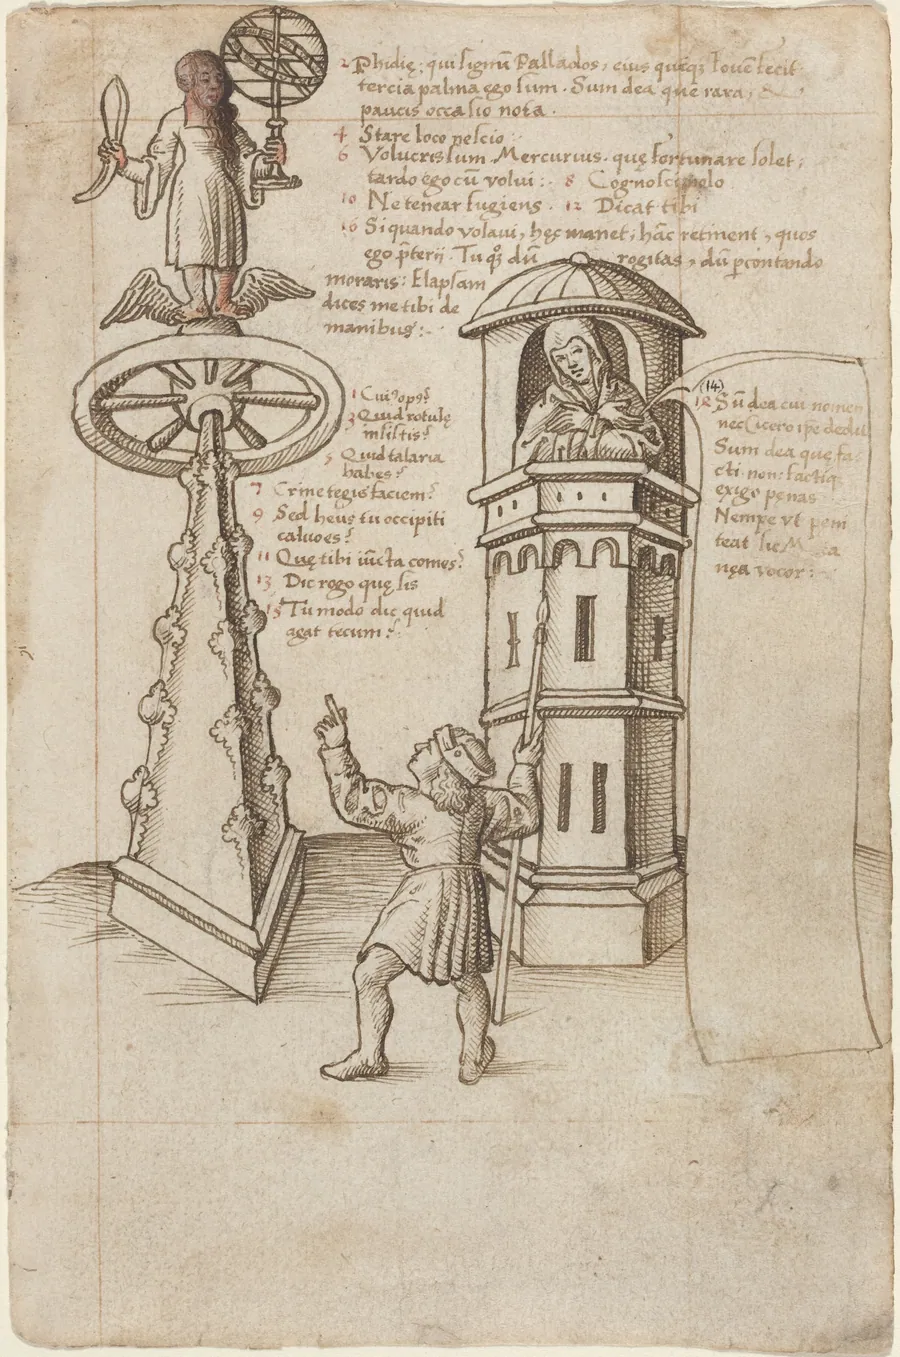 2 Phidię: qui signũ Pallados, eius quęqȝ Iovẽ fecit
tercia palma ego sum. Sum dea que rara,
paucis occasio nota.
4 Stare loco nescio
6 Volucris sum Mercurius. quę fortunare solet,
tardo ego cũ volui: 8 Cognosci nolo
10 Ne tenear fugiens. 12 Dicat tibi
16 Si quando volavi, hęc manet, hãc retinent, quos
ego p̃terij. Tu qȝ dũ rogitas, dũ p̱contando
moraris: Elapsam
dices me tibi de
manibus:
1 Cui' opꝰ?
3 Quid rotulę
insistis?
5 Quid talaria
habes?
7 Crine tegis faciem?
9 Sed heus tu occipiti
calvo es?
11 Quę tibi iũcta comes?
13 Dic rogo quę sis
15 Tu modo dic quid
agat tecum?
(14)
Sũ dea cui nomen
nec Cicero ip̃e dedit
Sum dea quę fa
cti non factiqȝ
exigo penas
Nempe vt peni
teat sic
nęa vocor: